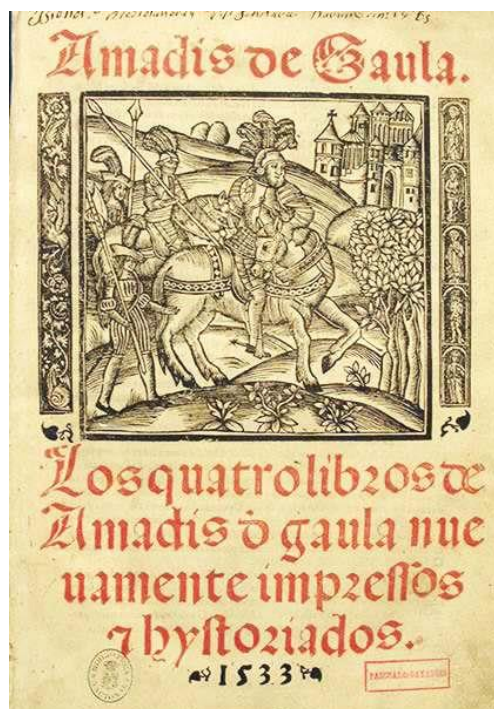 Amadis de Gaula.
Los quatro libros de
Amadis d̄ gaula nue
uamente impressos
⁊ hystoriados.
1533
PASCUAL DE GAYANGOS